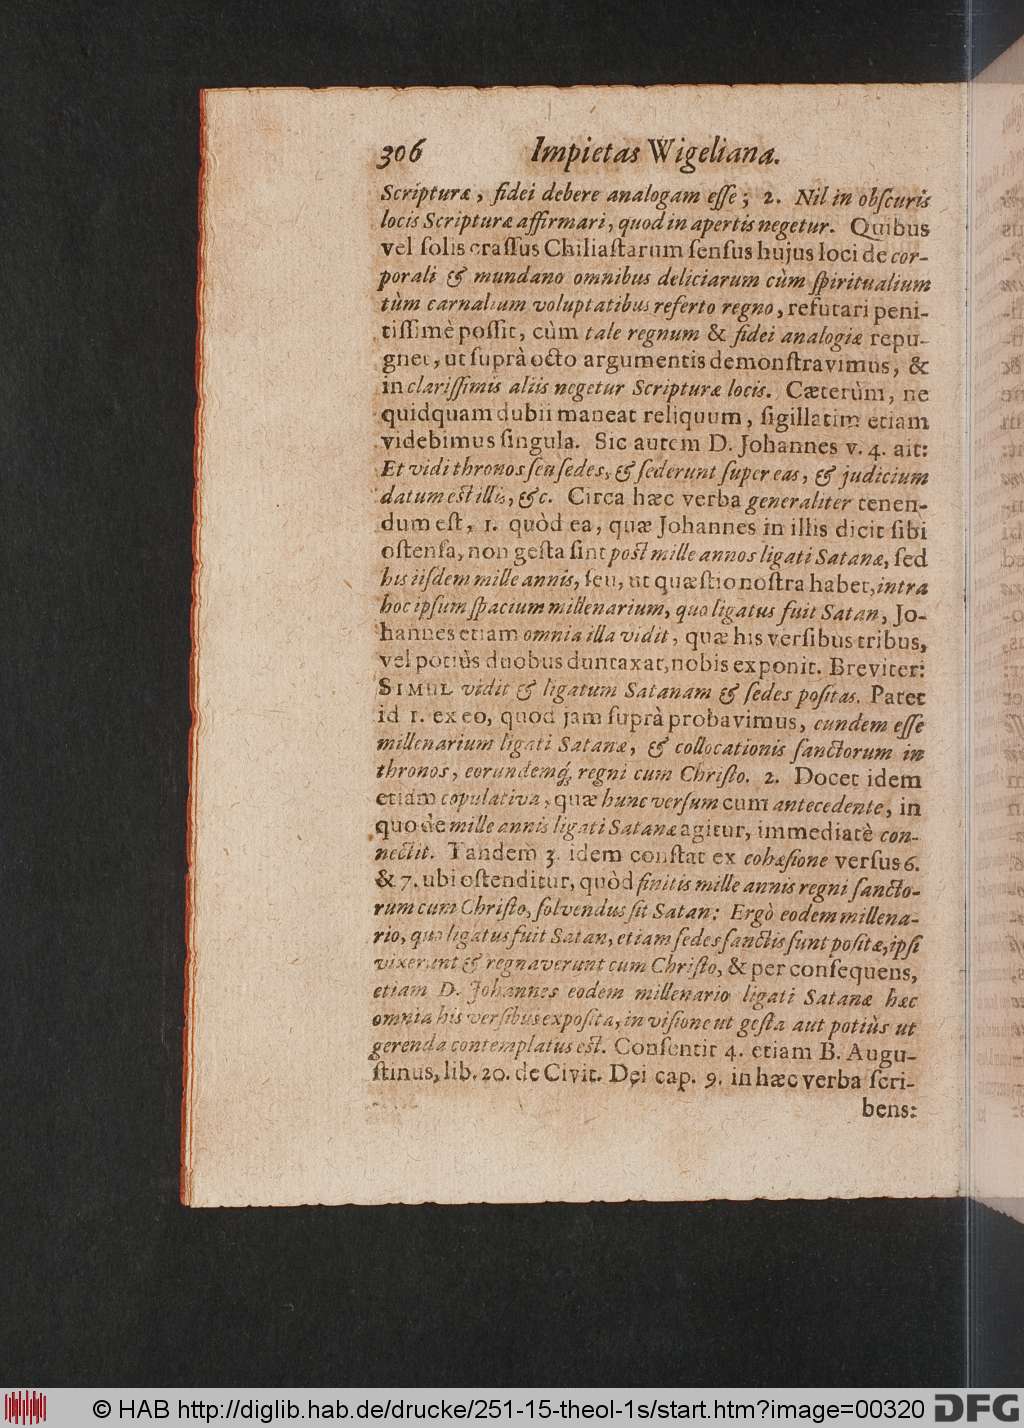 306 Impietas Wigeliana.
Scripturæ, fidei debere analogam eſſe; 2. Nil in obſcuris
locis Scripturæ affirmari, quod in apertis negetur. Quibus
vel ſolis craſſus Chiliaſtarum ſenſus hujus loci de cor-
porali & mundano omnibus deliciarum cùm ſpiritualium
tùm carnalium voluptatibus referto regno, refutari peni-
tiſſimè poſſit, cùm tale regnum & fidei analogiæ repu-
gnet, ut ſuprà octo argumentis demonſtravimus, &
in clariſſimis aliis negetur Scripturæ locis. Cæterùm, ne
quidquam dubii maneat reliquum, ſigillatim etiam
videbimus ſingula. Sic autem D. Johannes v. 4. ait:
Et vidi thronos ſeu ſedes, & ſederunt ſuper eas, & judicium
datum eſt illis, &c. Circa hæc verba generaliter tenen-
dum eſt, 1. quòd ea, quæ Johannes in illis dicit ſibi
oſtenſa, non geſta ſint poſt mille annos ligati Satanæ, ſed
his iiſdem mille annis, ſeu, ut quæſtio noſtra habet, intra
hoc ipſum ſpacium millenarium, quo ligatus fuit Satan, Jo-
hannes etiam omnia illa vidit, quæ his verſibus tribus,
vel potiùs duobus duntaxat, nobis exponit. Breviter:
SIMUL vidit & ligatum Satanam & ſedes poſitas. Patet
id 1. ex eo, quod jam ſuprà probavimus, eundem eſſe
millenarium ligati Satanæ, & collocationis ſanctorum in
thronos, eorundemq́; regni cum Chriſto. 2. Docet idem
etiam copulativa, quæ hunc verſum cum antecedente, in
quo de mille annis ligati Satanæ agitur, immediatè con-
nectit. Tandem 3. idem conſtat ex cohæſione verſus 6.
& 7. ubi oſtenditur, quòd finitis mille annis regni ſancto-
rum cum Chriſto, ſolvendus ſit Satan: Ergò eodem millena-
rio, quo ligatus fuit Satan, etiam ſedes ſanctis ſunt poſitæ, ipſi
vixerunt & regnaverunt cum Chriſto, & per conſequens,
etiam D. Johannes eodem millenario ligati Satanæ hæc
omnia his verſibus expoſita, in viſione ut geſta aut potiùs ut
gerenda contemplatus eſt. Conſentit 4. etiam B. Augu-
ſtinus, lib. 20. de Civit. Dei cap. 9. in hæc verba ſcri-
bens:
© HAB http://diglib.hab.de/drucke/251-15-theol-1s/start.htm?image=00320 DFG